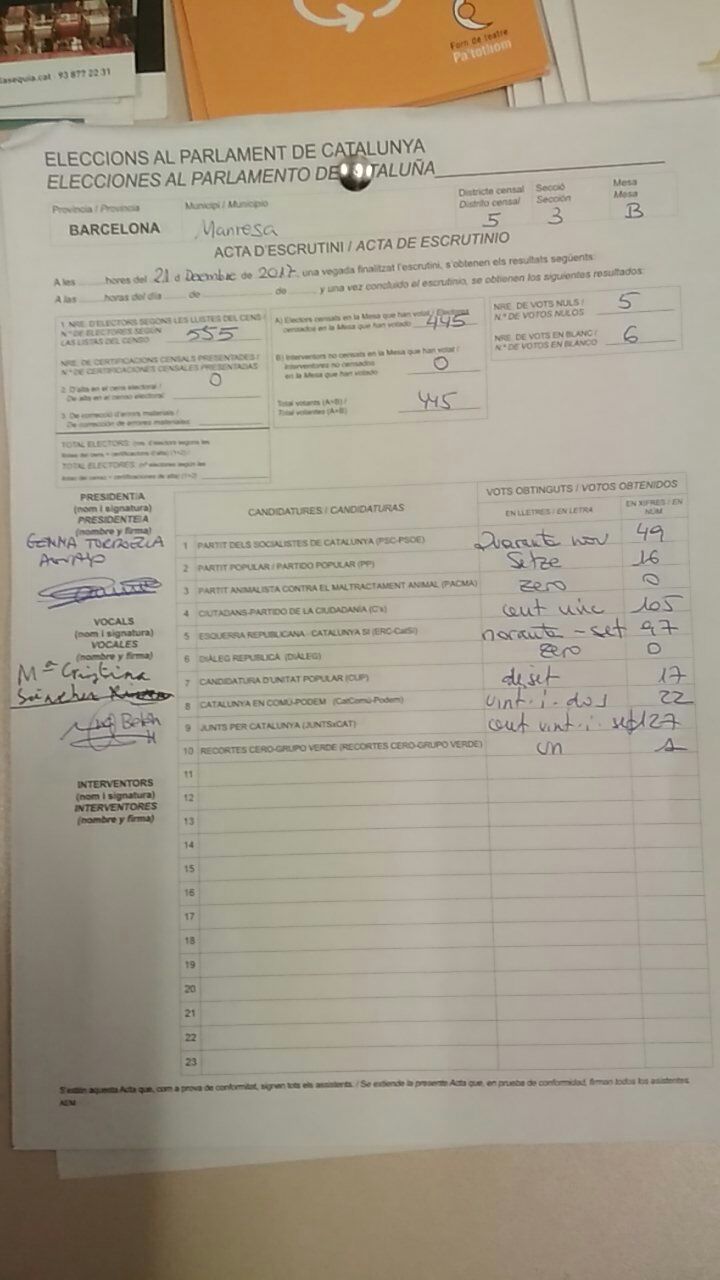 lasequia.cat · 93 877 22 31
Forn de teatre
Pa'tothom
ELECCIONS AL PARLAMENT DE CATALUNYA
ELECCIONES AL PARLAMENTO DE CATALUÑA
Província / Provincia
BARCELONA
Municipi / Municipio
Manresa
Districte censal
Distrito censal
5
Secció
Sección
3
Mesa
Mesa
B
ACTA D'ESCRUTINI / ACTA DE ESCRUTINIO
A les ........ hores del 21 d Desembre de 2017, una vegada finalitzat l'escrutini, s'obtenen els resultats següents:
A las ........ horas del día ...... de ............ de ......, y una vez concluido el escrutinio, se obtienen los siguientes resultados:
1. NRE. D'ELECTORS SEGONS LES LLISTES DEL CENS /
N.º DE ELECTORES SEGÚN
LAS LISTAS DEL CENSO 555
NRE. DE CERTIFICACIONS CENSALS PRESENTADES /
N.º DE CERTIFICACIONES CENSALES PRESENTADAS
2. D'alta en el cens electoral /
De alta en el censo electoral: 0
3. De correcció d'errors materials /
De corrección de errores materiales:
TOTAL ELECTORS: (nre. d'electors segons les
llistes del cens + certificacions d'alta) (1+2) /
TOTAL ELECTORES: (nº electores según las
listas del censo + certificaciones de alta) (1+2)
A) Electors censats en la Mesa que han votat / Electores
censados en la Mesa que han votado 445
B) Interventors no censats en la Mesa que han votat /
Interventores no censados
en la Mesa que han votado 0
Total votants (A+B) /
Total votantes (A+B) 445
NRE. DE VOTS NULS /
N.º DE VOTOS NULOS 5
NRE. DE VOTS EN BLANC /
N.º DE VOTOS EN BLANCO 6
PRESIDENT/A
(nom i signatura)
PRESIDENTE/A
(nombre y firma)
GEMMA
VOCALS
(nom i signatura)
VOCALES
(nombre y firma)
Mª Cristina
Sánchez
INTERVENTORS
(nom i signatura)
INTERVENTORES
(nombre y firma)
CANDIDATURES / CANDIDATURAS
VOTS OBTINGUTS / VOTOS OBTENIDOS
EN LLETRES / EN LETRA
EN XIFRES / EN NÚM
1 PARTIT DELS SOCIALISTES DE CATALUNYA (PSC-PSOE) Quaranta nou 49
2 PARTIT POPULAR / PARTIDO POPULAR (PP) Setze 16
3 PARTIT ANIMALISTA CONTRA EL MALTRACTAMENT ANIMAL (PACMA) zero 0
4 CIUTADANS-PARTIDO DE LA CIUDADANÍA (C's) cent cinc 105
5 ESQUERRA REPUBLICANA - CATALUNYA SÍ (ERC-CatSí) noranta - set 97
6 DIÀLEG REPUBLICÀ (DIÀLEG) zero 0
7 CANDIDATURA D'UNITAT POPULAR (CUP) diset 17
8 CATALUNYA EN COMÚ-PODEM (CatComú-Podem) vint·i·dos 22
9 JUNTS PER CATALUNYA (JUNTSxCAT) cent vint·i·set 127
10 RECORTES CERO-GRUPO VERDE (RECORTES CERO-GRUPO VERDE) un 1
11
12
13
14
15
16
17
18
19
20
21
22
23
S'estén aquesta Acta que, com a prova de conformitat, signen tots els assistents. / Se extiende la presente Acta que, en prueba de conformidad, firman todos los asistentes.